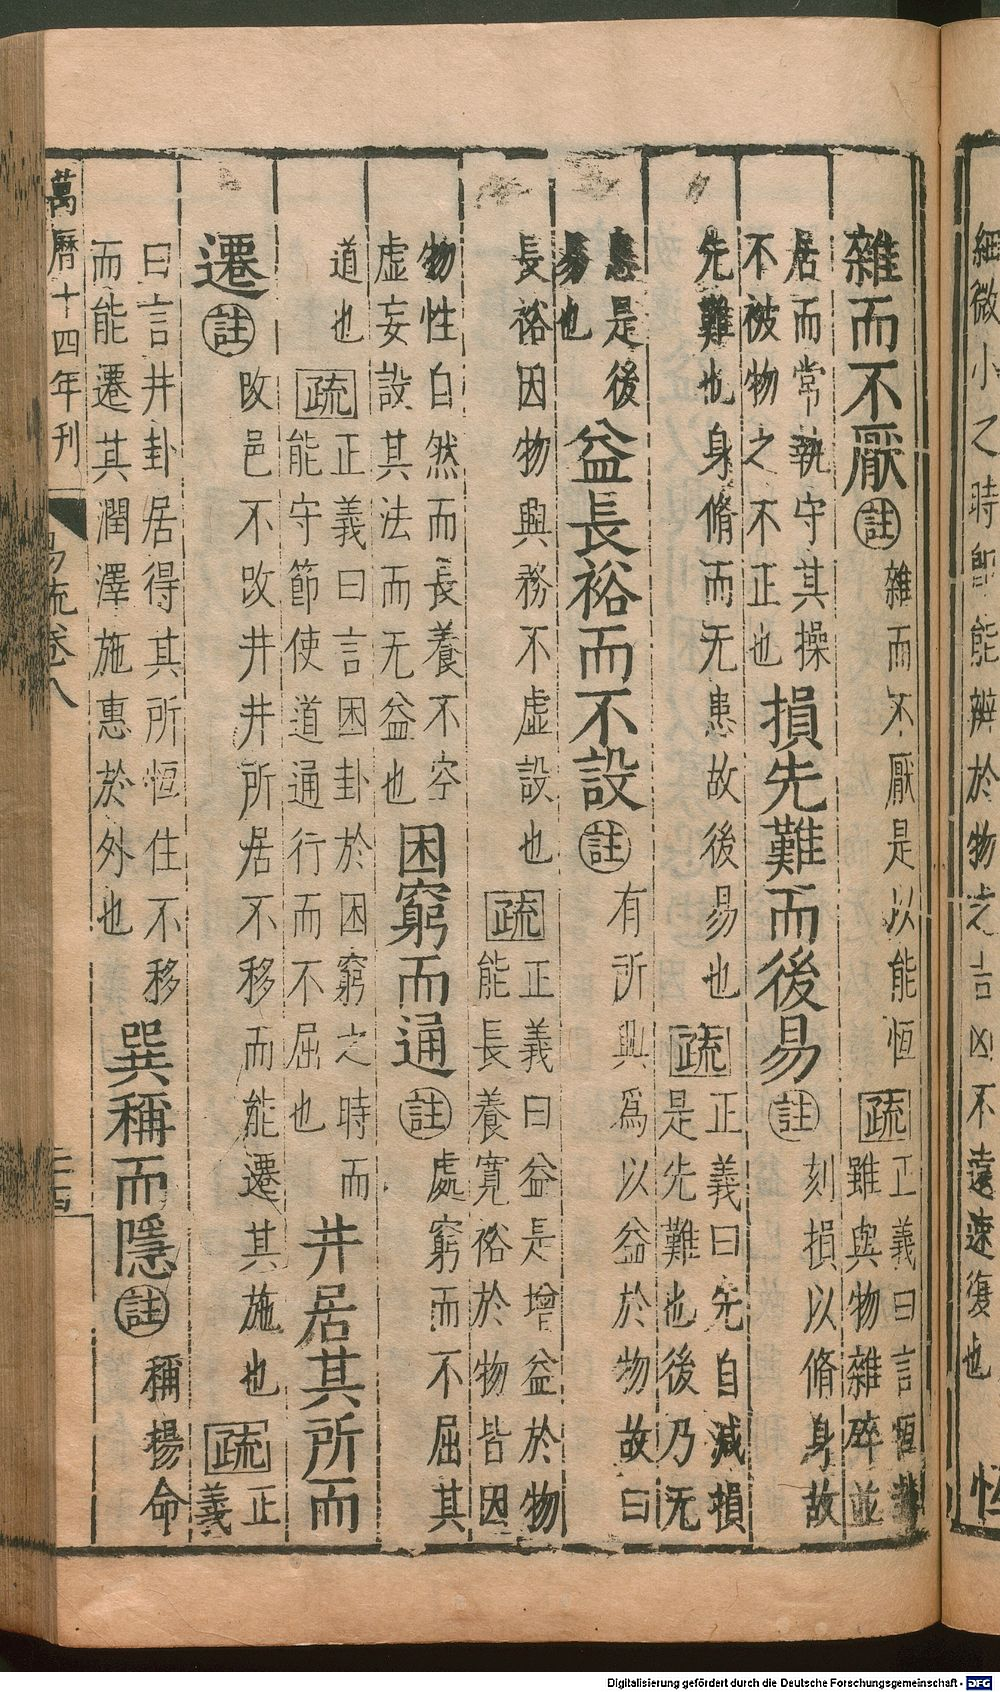 細微小之時即能辨於物之吉凶不遠速復也 恒
雜而不厭 註 雜而不厭是以能恒 疏 正義曰言恒卦
雖與物雜碎並
居而常執守其操
不被物之不正也 損先難而後易 註 刻損以脩身故
先難也身脩而无患故後易也 疏 正義曰先自減損
是先難也後乃无
患是後
易也 益長裕而不設 註 有所興爲以益於物故曰
長裕因物興務不虛設也 疏 正義曰益是增益於物
能長養寬裕於物皆因
物性自然而長養不空
虛妄設其法而无益也 困窮而通 註 處窮而不屈其
道也 疏 正義曰言困卦於困窮之時而
能守節使道通行而不屈也 井居其所而
遷 註 改邑不改井井所居不移而能遷其施也 疏 正
義
曰言井卦居得其所恒住不移
而能遷其潤澤施惠於外也 巽稱而隱 註 稱揚命
萬曆十四年刊 易疏卷八
Digitalisierung gefördert durch die Deutsche Forschungsgemeinschaft - DFG